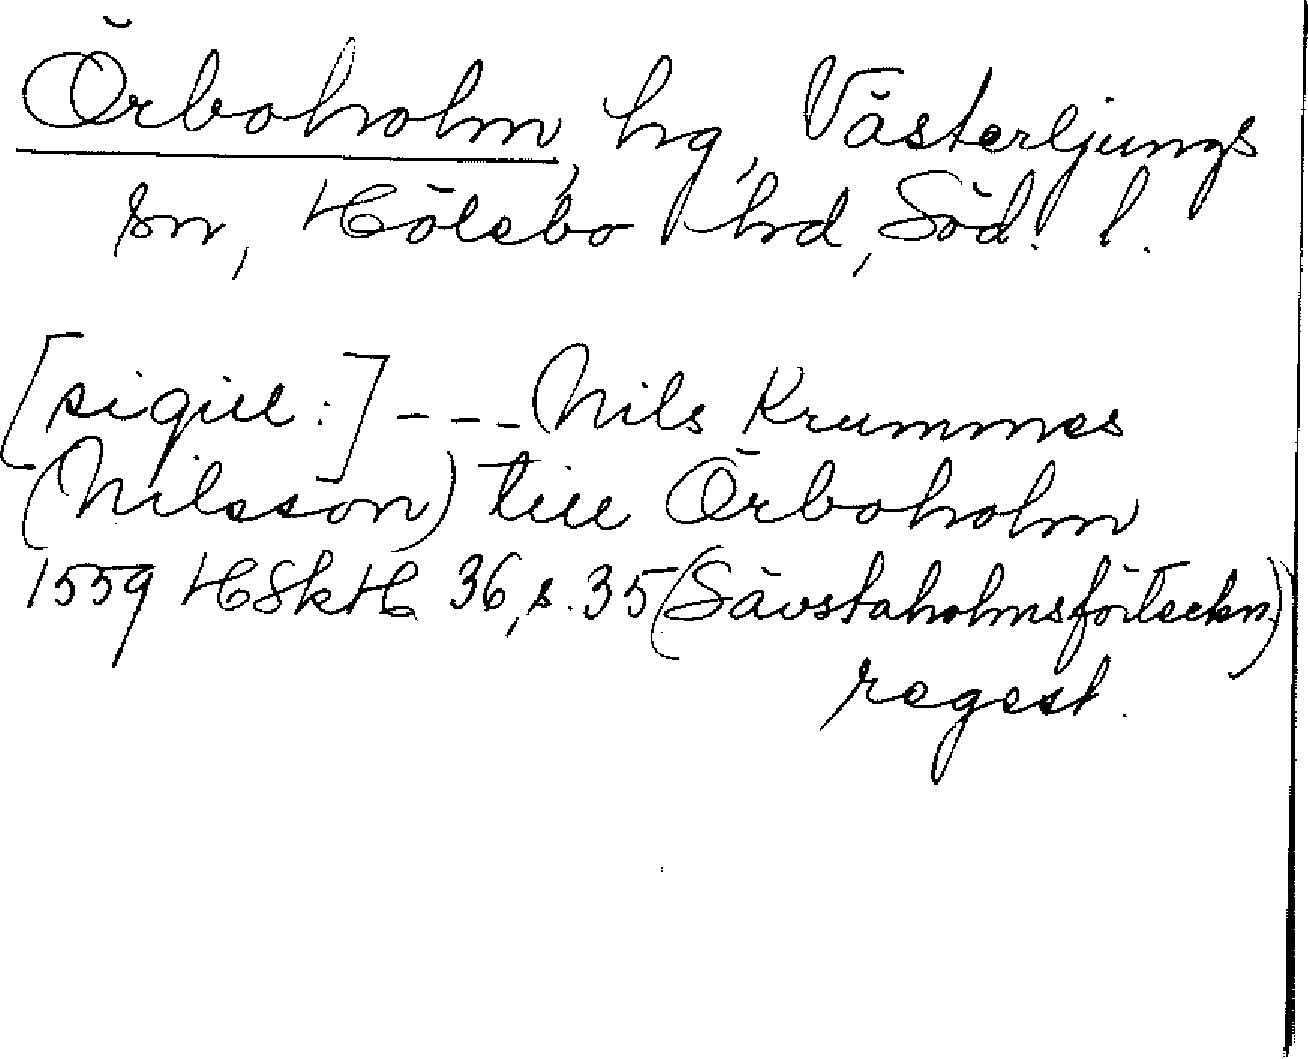 Örboholm, hg, Västerljungs
sn, Hölebo hd, Söd. l.
[sigill:] - - - Nils Krummes
(Nilsson) till Örboholm
1559 HSkH 36, s. 35 (Sävstaholmsförteckn.)
regest.